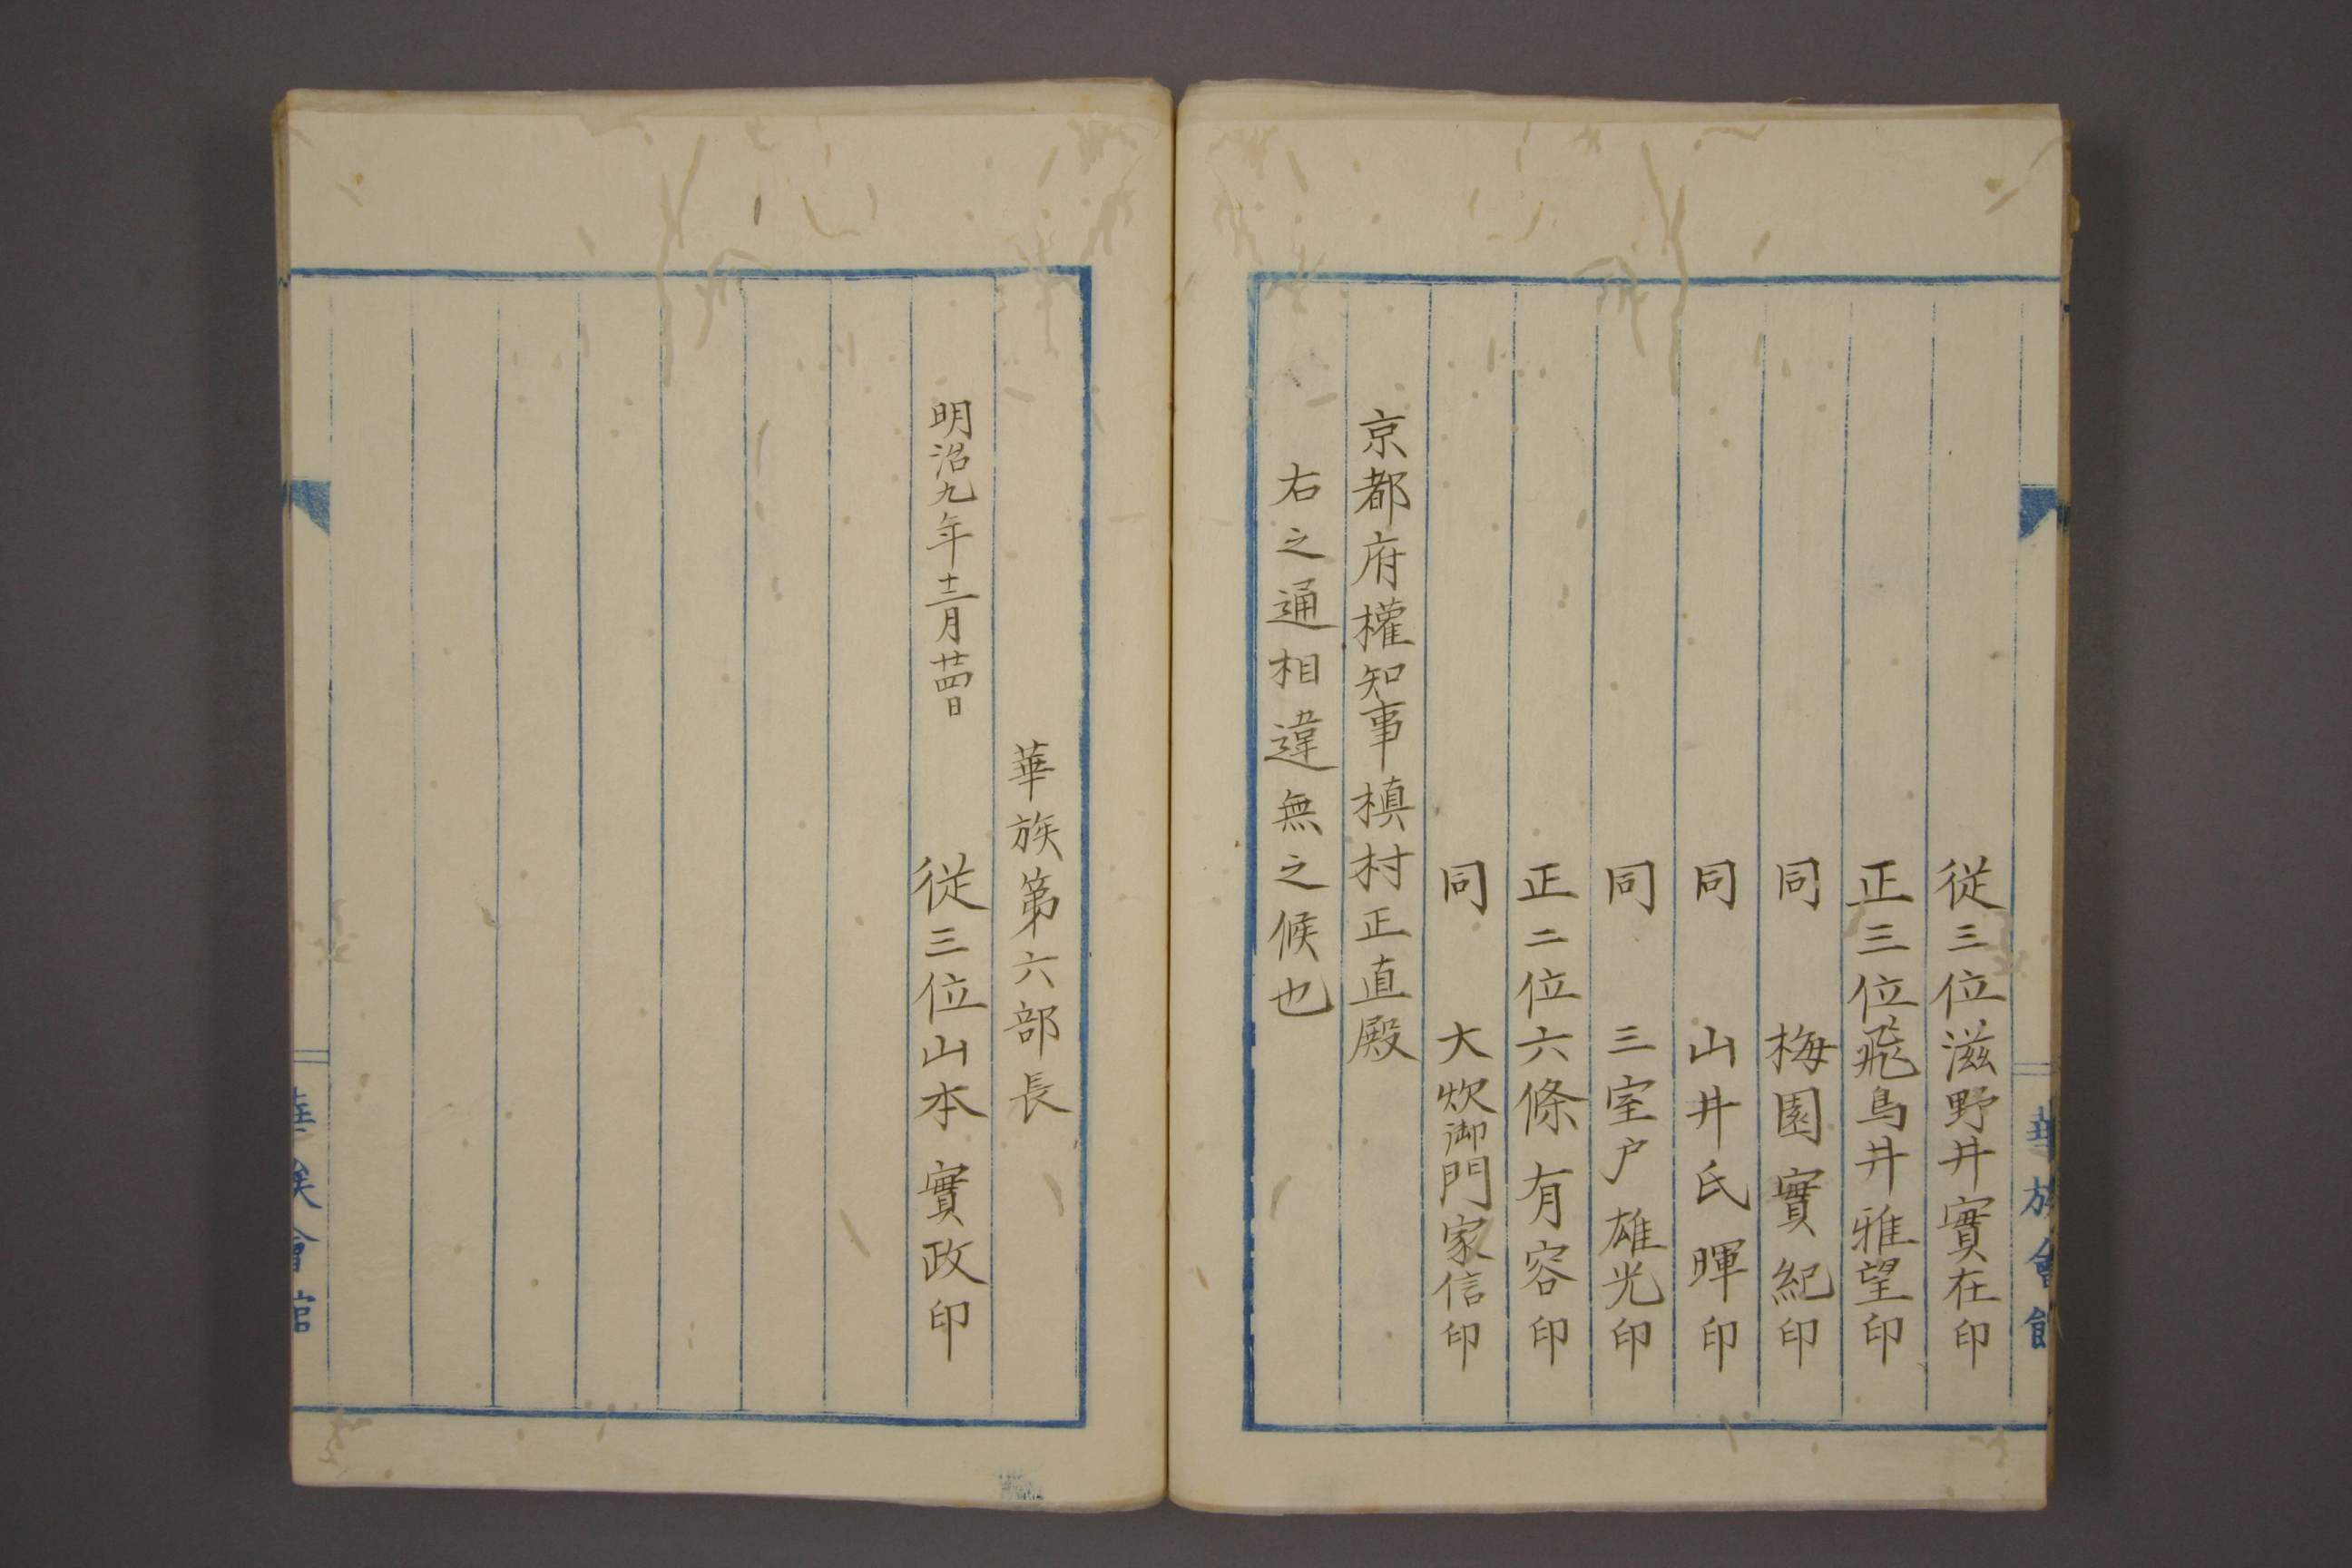 從三位滋野井實在印
正三位飛鳥井雅望印
同　梅園實紀印
同　山井氏暉印
同　三室戸雄光印
正二位六條有容印
同　大炊御門家信印
京都府權知事槙村正直殿
右之通相違無之候也
華族第六部長
明治九年十二月廿四日　從三位山本實政印
華族會館
華族會館